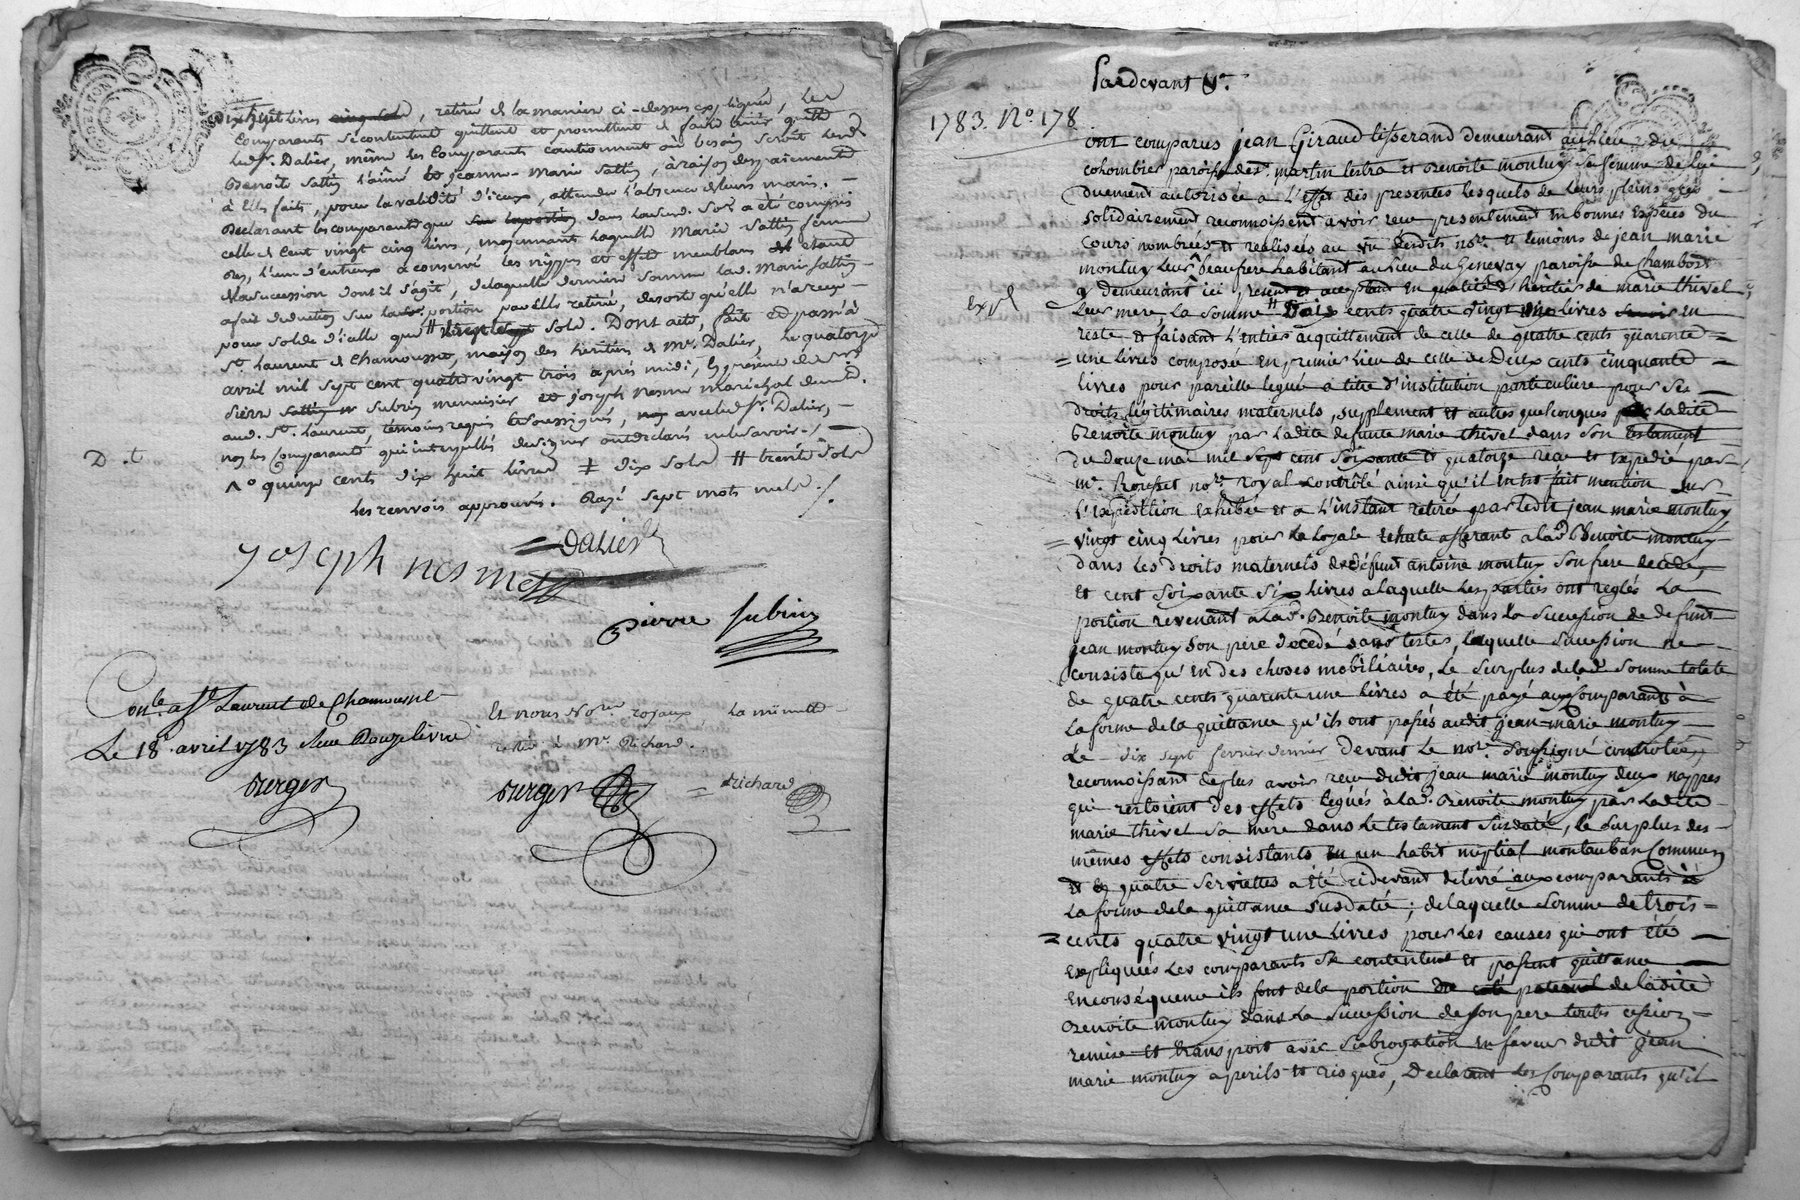 dixhuit livres cinq sols, retiré de la maniere ci-dessus expliquée, les
Comparants se contentent quittent et promettent de faire tenir quitte
led. Sr. Dalier, même les Comparants cautionnent au besoin
Benoît Sattin l'ainé et jeanne-Marie Sattin, à raison des paiements
à Elles faits, pour la validité d'iceux, attendu l'absence de leurs maris.
Declarant les comparants que dans lad. Som. a été compris
celle de Cent vingt cinq livres, moyennant laquelle Marie Sattin femme
l'un d'entreux a conservé les nippes et effets meublans etant
de la succession dont il s'agit, de laquelle derniere somme lad. Marie Sattin
a fait deduction sur la portion par elle retirée, desorte qu'elle n'a reçu
pour solde d'icelle que sols. Dont acte, fait et passé à
St. Laurent de Chamousset, maison des héritiers de Me. Dalier, le quatorze
avril mil sept cent quatre vingt trois après midi, En présence de
pierre Subrin menuisier et joseph Nesme maréchal demt.
aud. St. Laurent, témoins requis et soussignés, avec led. Sr. Dalier,
non les Comparants qui interpellés de signer ont declaré ne le savoir
quinze cents dix huit livres ‡ dix sols # trente sols
les renvois approuvés. Rayé sept mots nuls
D. t
Dalier
joseph nesme
pierre subrin
Conlé. à St. Laurent de Chamousset
Le 18. avril 1783 Reçu Douze livres
surger
Et nous Nore. royaux, La minutte
restée à Me. Richard.
surger
Richard
Pardevant
1783. No. 178
ont comparus jean Giraud tisserand demeurant au lieu du
colombier paroisse de St. martin lestra et Benoite montuy sa femme de lui
duement autorisée à L'effet des presentes lesquels de leurs pleins grés
solidairement reconnoissent avoir reçu presentement en bonnes Espèces du
cours nombrées et realisées au vû desdits nore. et temoins de jean marie
montuy leur beaufrere habitant au lieu du Genevay paroisse de Chambost
y demeurant ici present et acceptant en qualité d'heritier de marie thivel
Expé
leur mere La somme Trois cents quatre vingt une livres en
reste et faisant L'entier acquittement de celle de quatre cents quarente
une livres composée En premier lieu de celle de Deux cents cinquante
livres pour pareille leguée a titre d'institution particuliere pour ses
droits legitimaires maternels, supplement et autres quelconques à Ladite
Benoite montuy par Ladite defunte marie thivel dans son testament
du douze mai mil sept cent soixante et quatorze reçu et expedié par
me. Rousset nore. royal controlé ainsi qu'il en est fait mention sur
L'expédition exhibée et a L'instant retirée par ledit jean marie montuy
vingt cinq Livres pour La Loyale echute afferant a lad. Benoite montuy
dans Les droits maternels de défunt antoine montuy son frere
et cent soixante six livres a laquelle les parties ont reglés La
portion revenant a lad. Benoite montuy dans la succession de defunt
jean montuy son pere decedé sans testes, laquelle succession ne
consiste qu'en des choses mobiliaires, Le surplus de lad. somme totale
de quatre cents quarente une livres a été payé aux comparants à
La forme de la quittance qu'ils ont passés audit jean-marie montuy
Le dix sept fevrier dernier devant Le nore. soussigné controlée,
reconnoissant de plus avoir reçu dudit jean marie montuy deux nappes
qui restoient des effets legués à lad. Benoite montuy par ladite
marie thivel sa mere dans le testament susdaté, le surplus des
mêmes effets consistants en un habit nuptial montauban commun
et quatre serviettes a été cidevant delivré aux comparants à
La forme de la quittance susdatée; de laquelle somme de trois
cents quatre vingt une livres pour les causes qui ont étés
expliquées Les comparants se contentent et passent quittance
En conséquence ils font de la portion de ladite
Benoite montuy dans La succession de son pere toutes cession
remise et transport avec subrogation en faveur dudit jean
marie montuy a perils et risques, Declarant les comparants qu'il